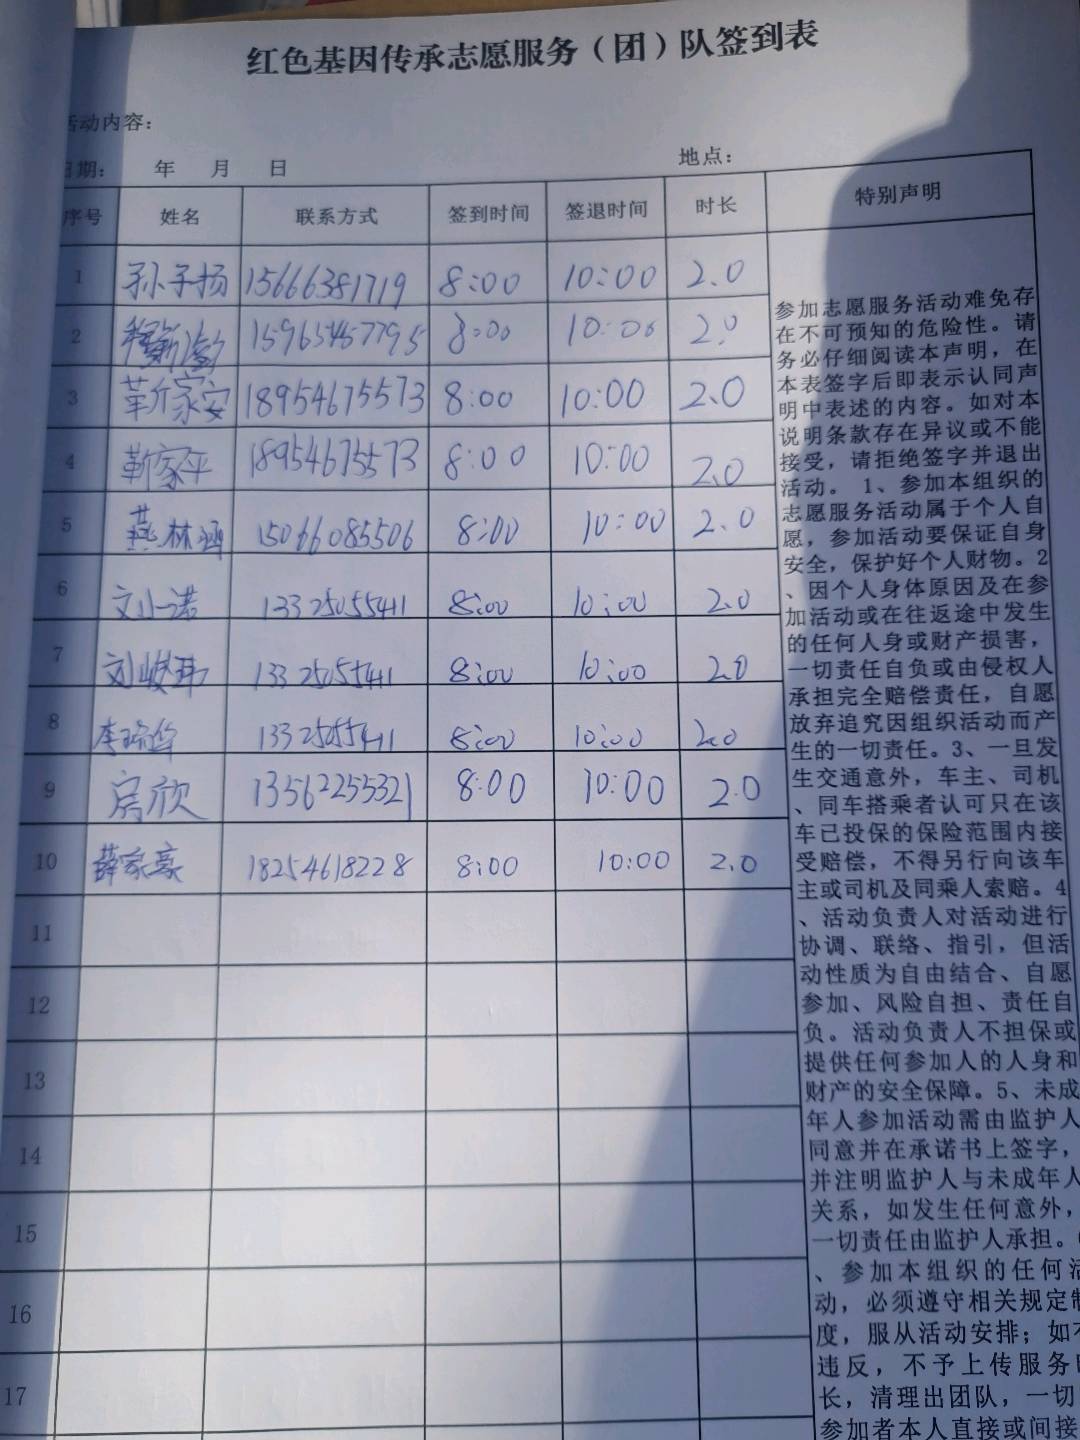 红色基因传承志愿服务（团）队签到表
活动内容：
日期： 年 月 日 地点：
序号 姓名 联系方式 签到时间 签退时间 时长 特别声明
1 孙子扬 15666381719 8:00 10:00 2.0
2 15965457795 8:00 10:00 2.0
3 靳家安 18954675573 8:00 10:00 2.0
4 靳家平 18954675573 8:00 10:00 2.0
5 燕林涵 15066085506 8:00 10:00 2.0
6 文小诺 13325055411 8:00 10:00 2.0
7 刘峻玮 13325055411 8:00 10:00 2.0
8 李瑞华 13325055411 8:00 10:00 2.0
9 房欣 13562255321 8:00 10:00 2.0
10 薛家豪 18254618228 8:00 10:00 2.0
11
12
13
14
15
16
17
参加志愿服务活动难免存
在不可预知的危险性。请
务必仔细阅读本声明，在
本表签字后即表示认同声
明中表述的内容。如对本
说明条款存在异议或不能
接受，请拒绝签字并退出
活动。 1、参加本组织的
志愿服务活动属于个人自
愿，参加活动要保证自身
安全，保护好个人财物。2
、因个人身体原因及在参
加活动或在往返途中发生
的任何人身或财产损害，
一切责任自负或由侵权人
承担完全赔偿责任，自愿
放弃追究因组织活动而产
生的一切责任。3、一旦发
生交通意外，车主、司机
、同车搭乘者认可只在该
车已投保的保险范围内接
受赔偿，不得另行向该车
主或司机及同乘人索赔。4
、活动负责人对活动进行
协调、联络、指引，但活
动性质为自由结合、自愿
参加、风险自担、责任自
负。活动负责人不担保或
提供任何参加人的人身和
财产的安全保障。5、未成
年人参加活动需由监护人
同意并在承诺书上签字，
并注明监护人与未成年人
关系，如发生任何意外，
一切责任由监护人承担。
、参加本组织的任何活
动，必须遵守相关规定制
度，服从活动安排；如不
违反，不予上传服务时
长，清理出团队，一切
参加者本人直接或间接